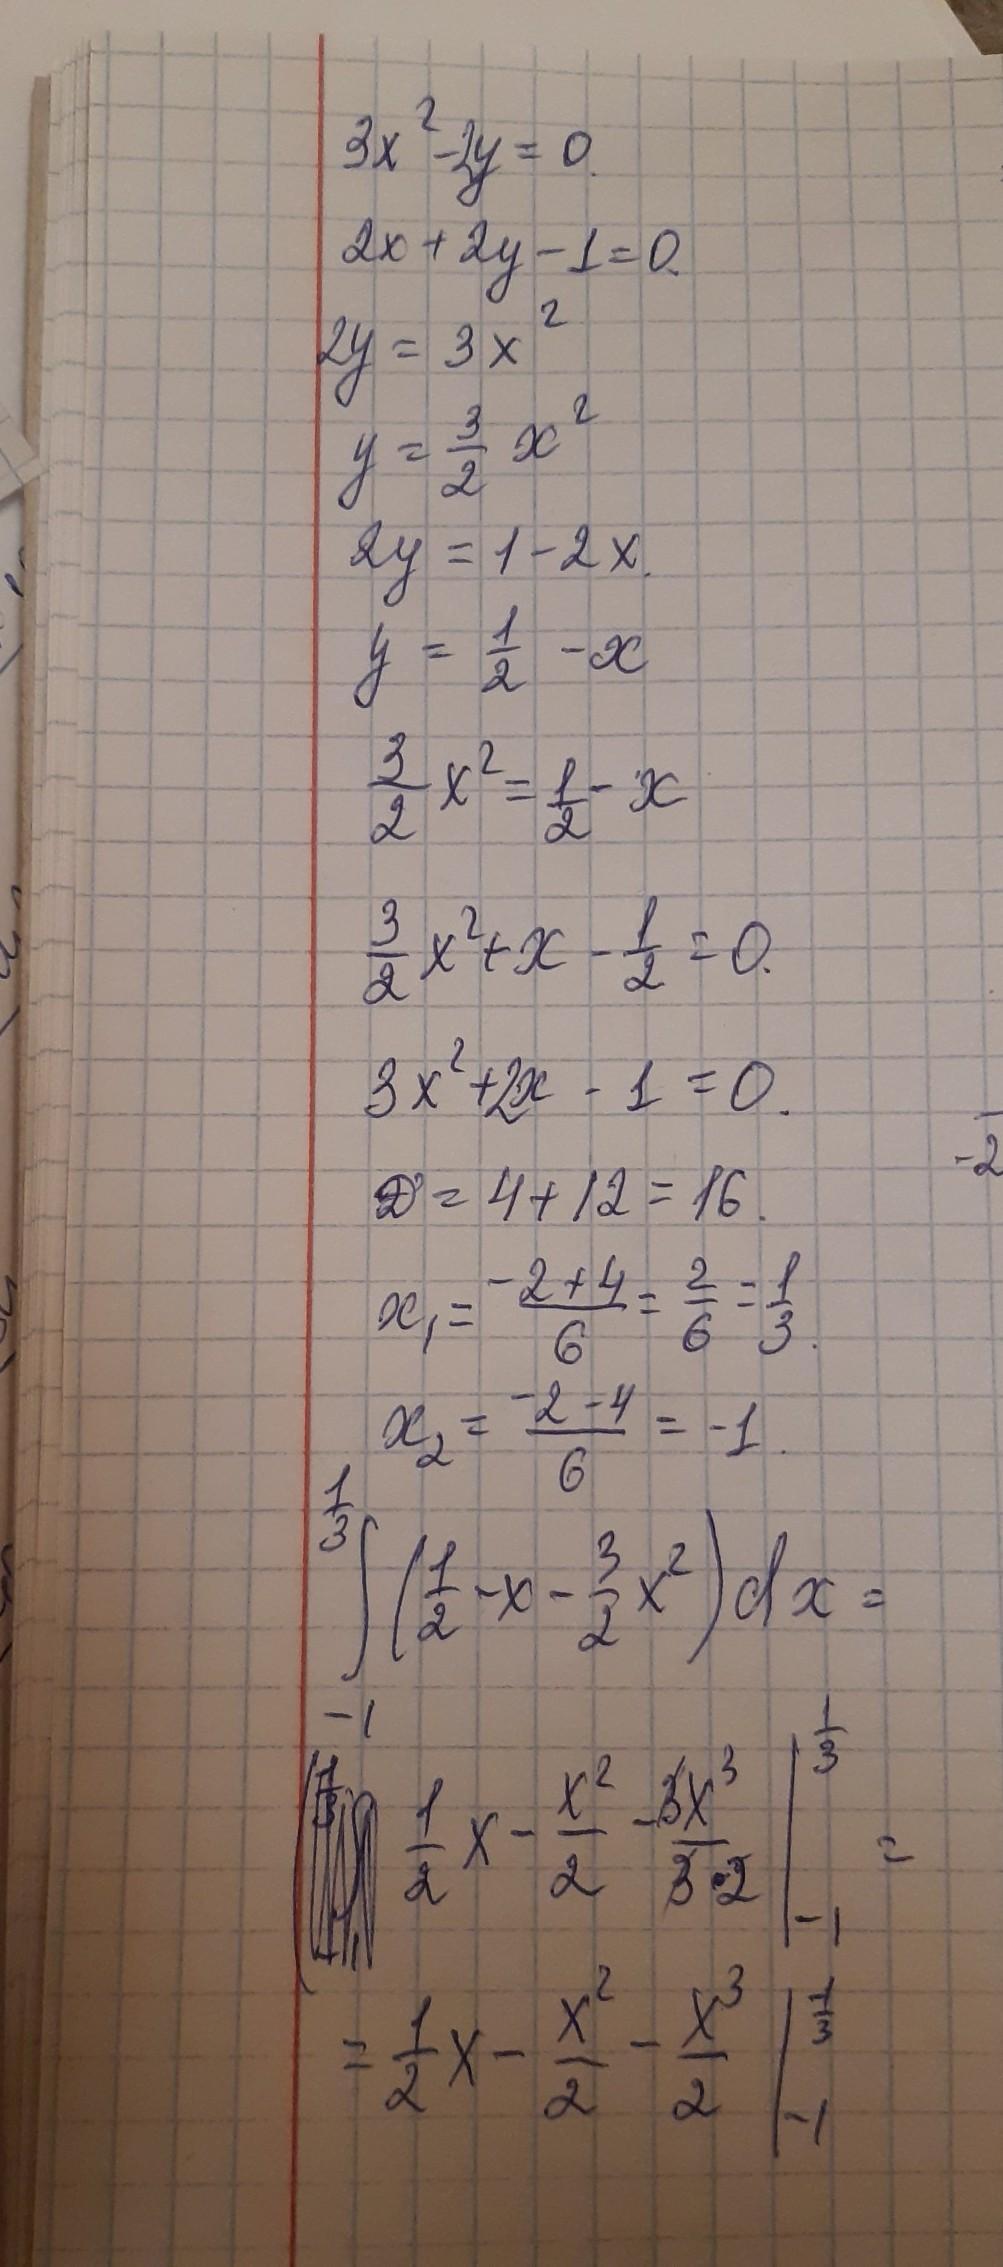 3x² - 2y = 0.
2x + 2y - 1 = 0.
2y = 3x²
y = 3/2 x²
2y = 1 - 2x.
y = 1/2 - x
3/2 x² = 1/2 - x
3/2 x² + x - 1/2 = 0.
3x² + 2x - 1 = 0.
-2
D = 4 + 12 = 16.
x₁ = (-2+4)/6 = 2/6 = 1/3.
x₂ = (-2-4)/6 = -1.
∫_{-1}^{1/3} (1/2 - x - 3/2 x²) dx =
( 1/2 x - x²/2 - 3x³/(3·2) |_{-1}^{1/3} =
= 1/2 x - x²/2 - x³/2 |_{-1}^{1/3}